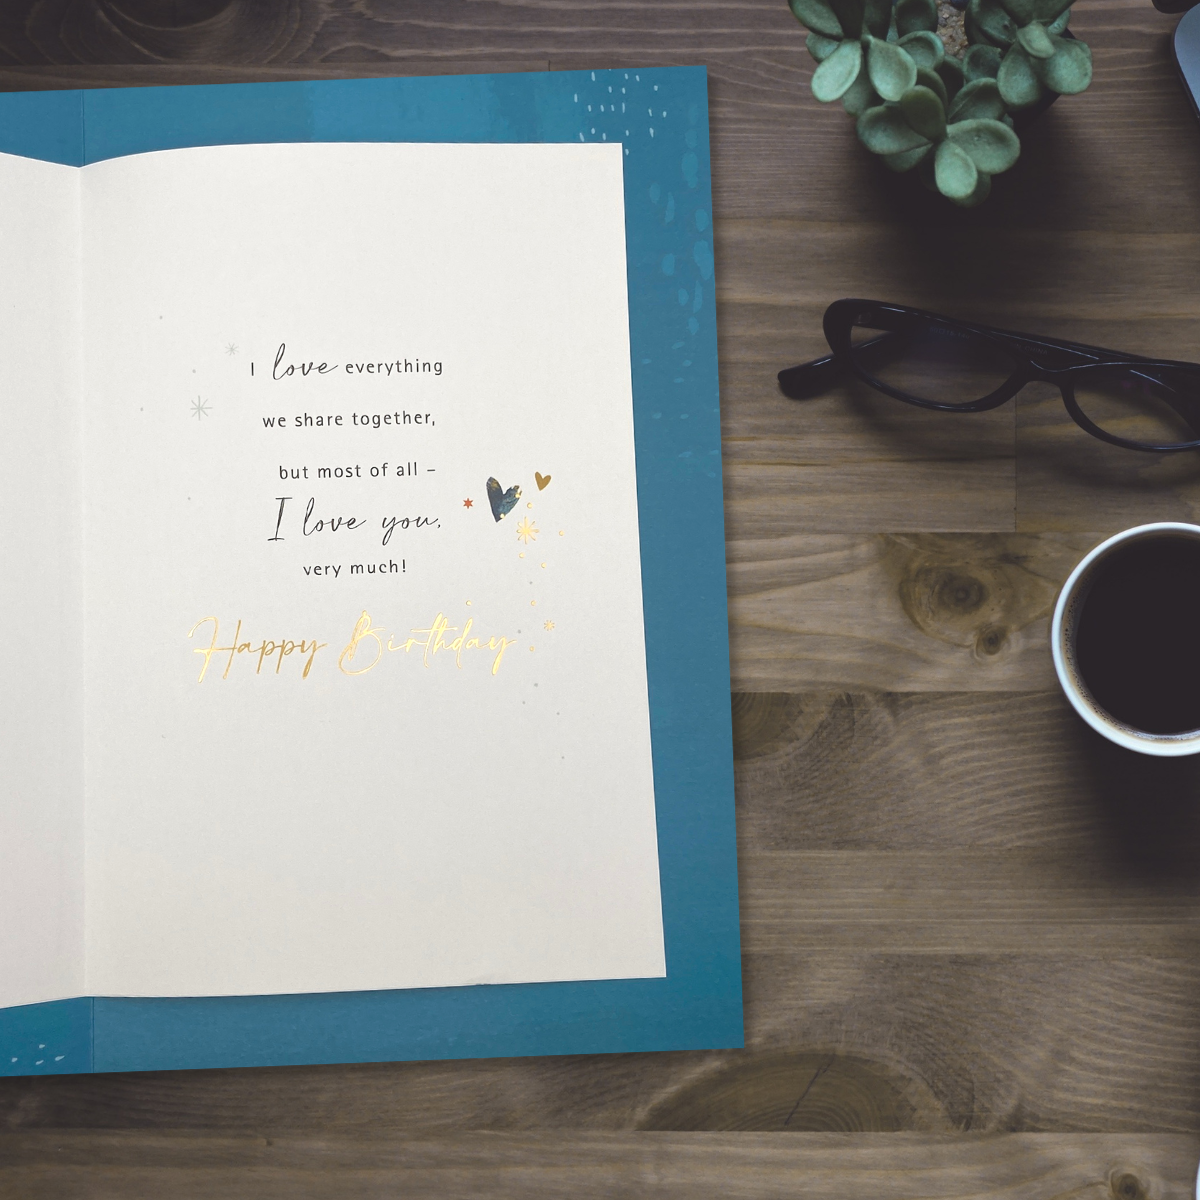 I love everything
we share together,
but most of all –
I love you,
very much!
Happy Birthday